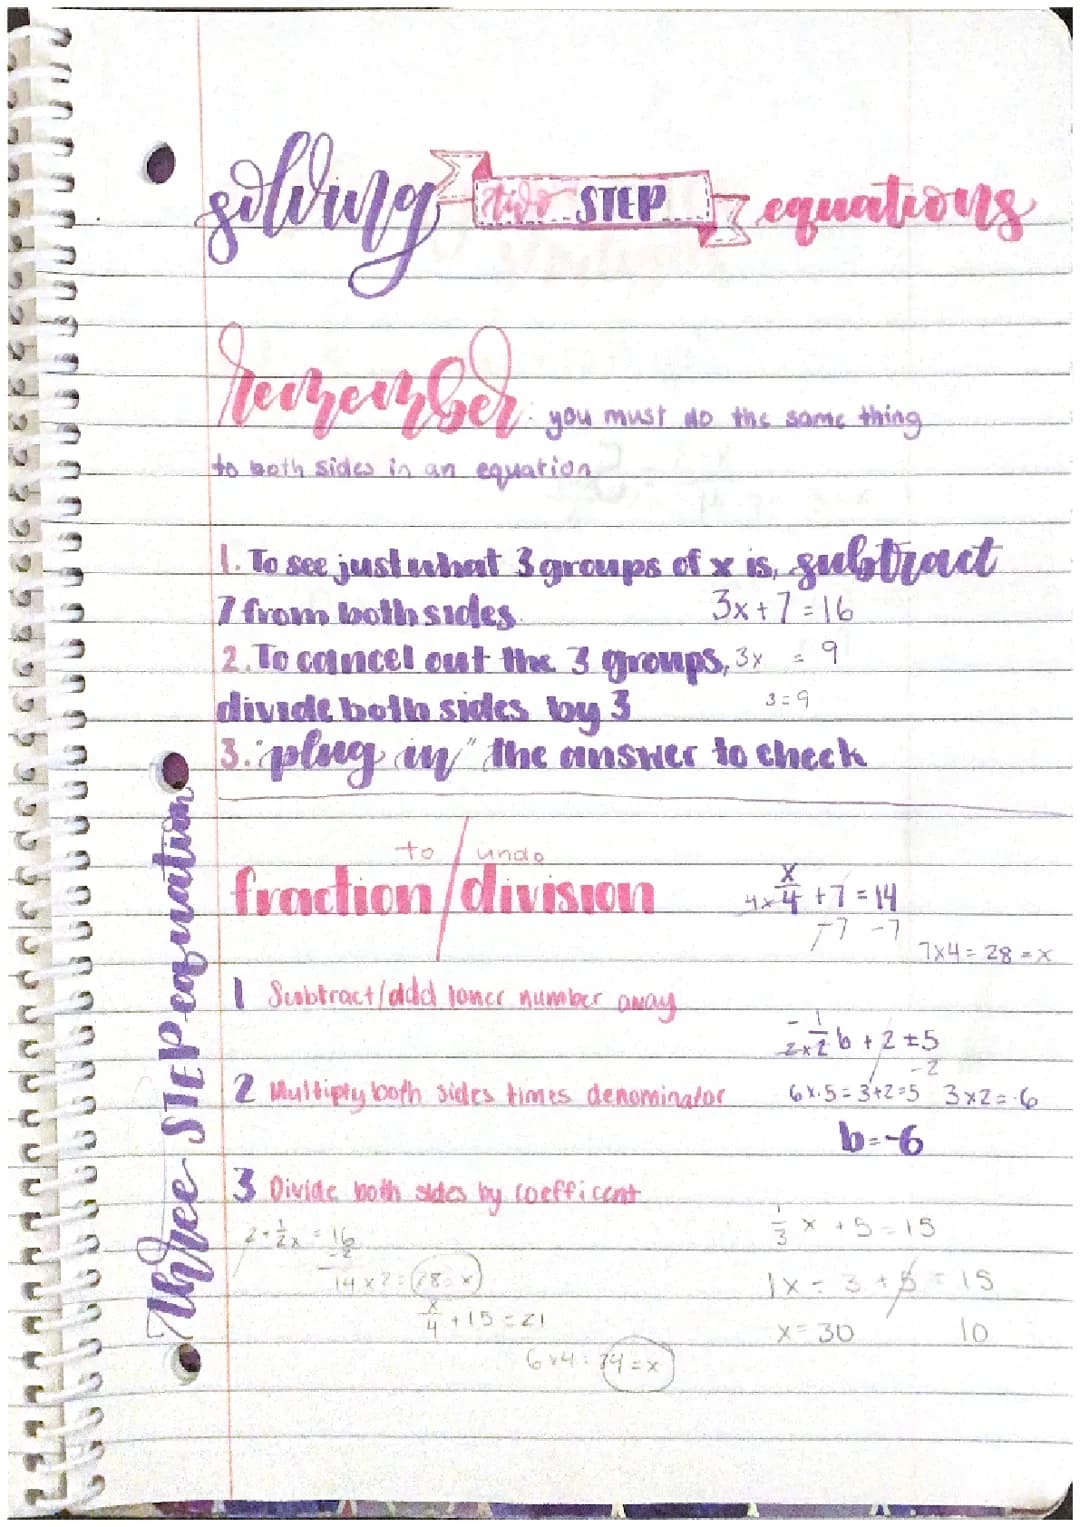 solving two STEP equations
remember: you must do the same thing
to both sides in an equation
1. To see just what 3 groups of x is, subtract
7 from both sides.
3x+7=16
2. To cancel out the 3 groups,
3x = 9
divide both sides by 3
3=9
3. "plug in" the answer to check
to / undo
fraction / division
x
4x 4 +7=14
-7 -7
7x4=28=x
1 Subtract/add loner number away
-1
2x2 b + 2 ±5
-2
2 Multiply both sides times denominator
6x.5=3+2=5 3x2=-6
b=-6
3 Divide both sides by coefficent
2+1/2x=16
-2
14x2=28=x
x/4+15=21
6x4=24=x
1/3 x +5=15
1x= 3 +5=15
x=30 10
three STEP equation